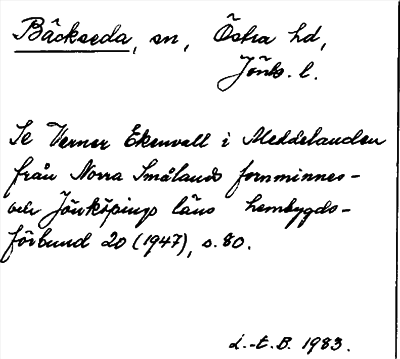 Bäckseda, sn, Östra hd,
Jönk. l.
Se Verner Ekenvall i Meddelanden
från Norra Smålands fornminnes-
och Jönköpings läns hembygds-
förbund 20 (1947), s. 80.
L.-E. B. 1983.